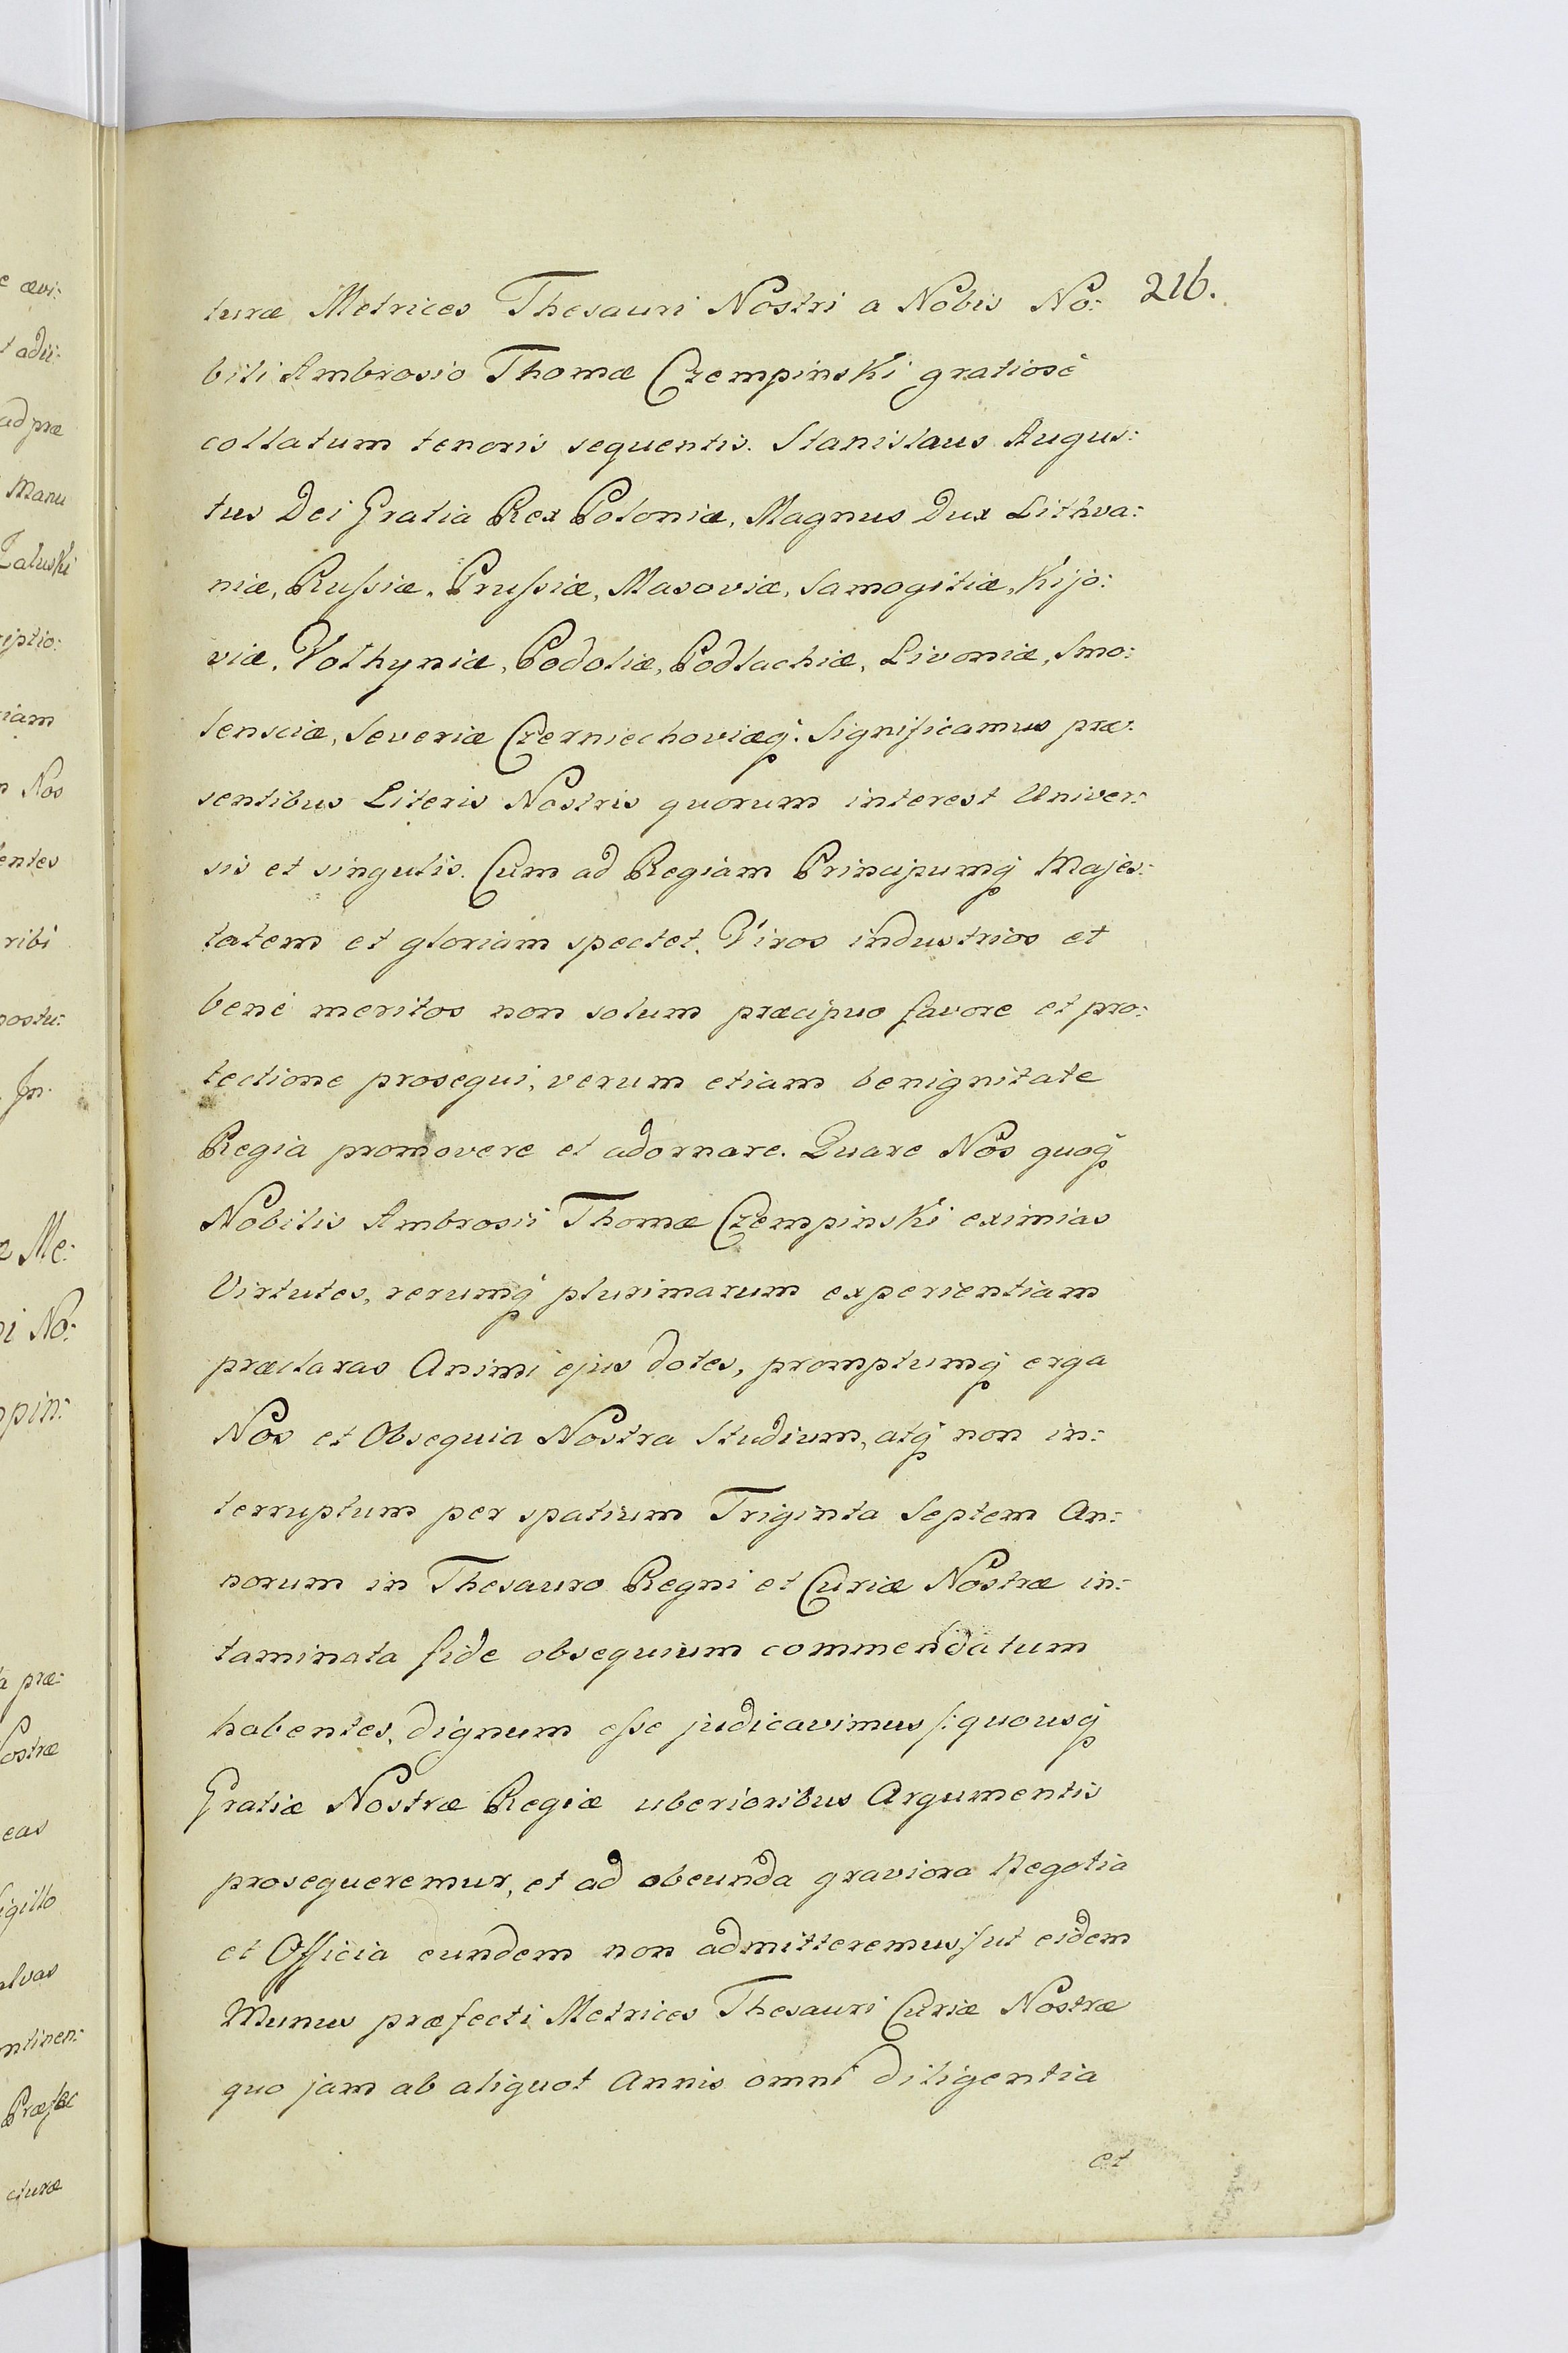 216.
turæ Metrices Thesauri Nostri a Nobis No:
bili Ambrosio Thomæ Czempinski gratiosè
collatum tenoris sequentis. Stanislaus Augus:
tus Dei Gratia Rex Poloniæ, Magnus Dux Lithva:
niæ, Rußiæ, Prußiæ, Masoviæ, Samogitiæ, Kijo:
viæ, Volhyniæ, Podoliæ, Podlachiæ, Livoniæ, Smo:
lensciæ, Severiæ Czerniechoviæq: Significamus præ:
sentibus Literis Nostris quorum interest Univer:
sis et singulis. Cùm ad Regiam Principumq Majes:
tatem et gloriam spectet, Viros industrios et
benè meritos non solum præcipuo favore et pro:
tectione prosequi, verum etiam benignitate
Regia promovere et adornare. Quare Nos quoq
Nobilis Ambrosii Thomæ Czempinski eximias
Virtutes, rerumq plurimarum experientiam
præclaras Animi ejus dotes, promptumq erga
Nos et Obsequia Nostra Studium, atq non in:
terruptum per spatium Triginta Septem An:
norum in Thesauro Regni et Curiæ Nostræ in:
taminata fide obsequium commendatum
habentes, dignum eße judicavimus /: quousq
Gratiæ Nostræ Regiæ uberioribus Argumentis
prosequeremur, et ad obeunda graviora Negotia
et Officia eundem non admitteremus / ut eidem
Munus præfecti Metrices Thesauri Curiæ Nostræ
quo jam ab aliquot Annis omni diligentia
et
e ævi:
t adii:
ad præ
Manu
Zaluski
riptio:
riam
Nos
entes
ribi
postu:
In
Me:
ni No:
mpin:
præ:
Nostræ
eas
Sigillo
alvas
ontinen:
Præfec
cturæ